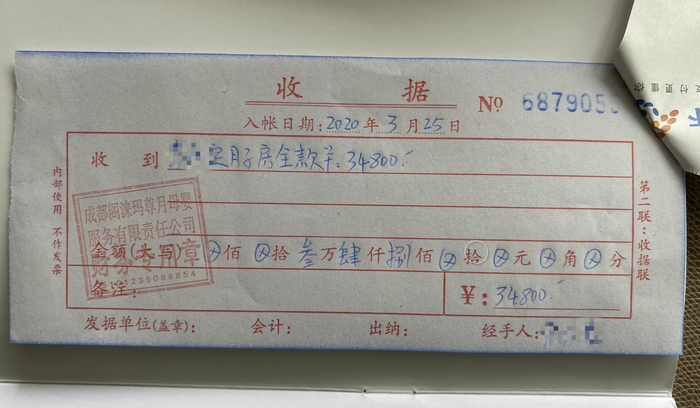 收 据
№ 687905
入帐日期:2020年3月25日
收 到 定月子房全款¥:34800.
内部使用 不作发票
第二联:收据联
成都阁涞玛尊月母婴
服务有限责任公司
财务专用章
金额(大写) ⊗佰⊗拾叁万肆仟捌佰⊗拾⊗元⊗角⊗分
备注:
¥:34800.
发据单位(盖章): 会计: 出纳: 经手人: